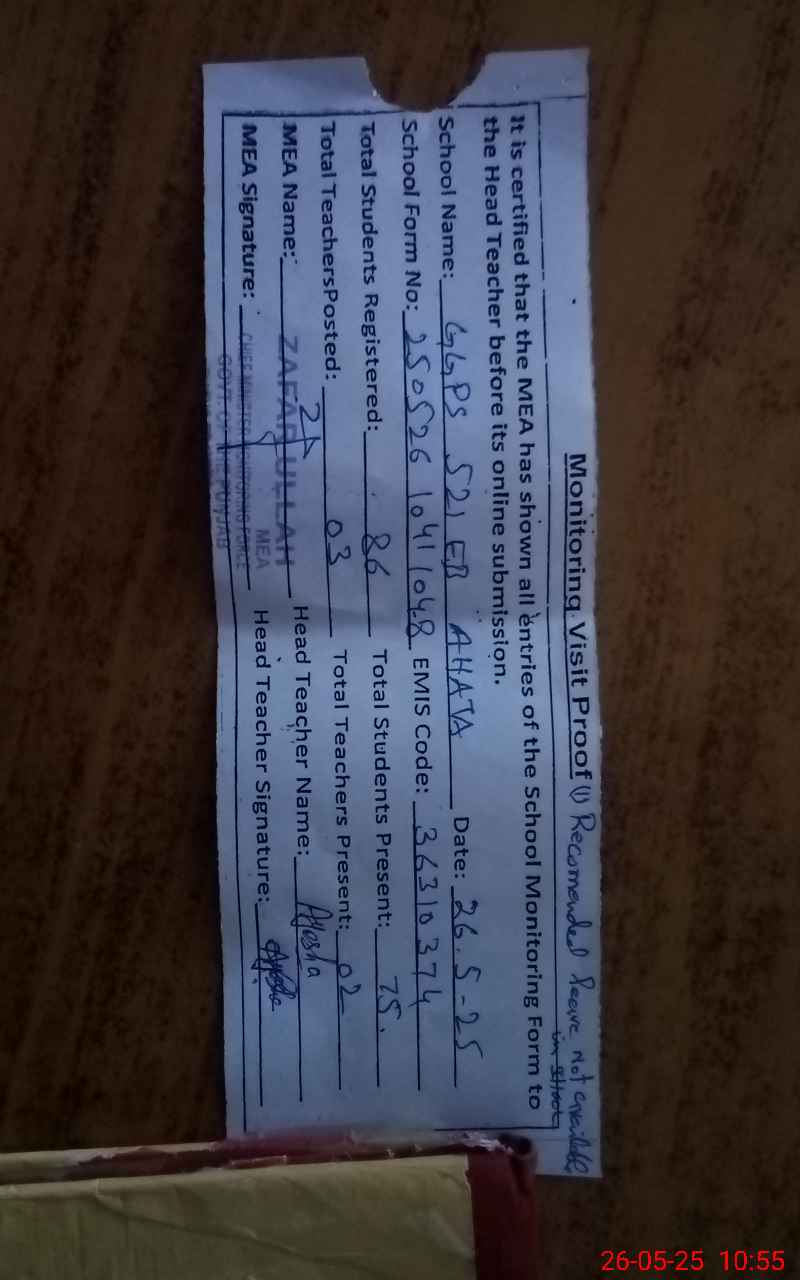 Monitoring Visit Proof (1) Recomended leave not available
in school
It is certified that the MEA has shown all entries of the School Monitoring Form to
the Head Teacher before its online submission.
School Name: GGPS 521 EB AHATA Date: 26.5-25
School Form No: 250526 1041 1048 EMIS Code: 36310374
Total Students Registered: 86 Total Students Present: 75.
Total TeachersPosted: 03 Total Teachers Present: 02
MEA Name: ZAFAR ULLAH Head Teacher Name: Ayesha
MEA
MEA Signature: CHIEF MINISTER MONITORING FORCE Head Teacher Signature: Ayesha
GOVT. OF THE PUNJAB
26-05-25 10:55